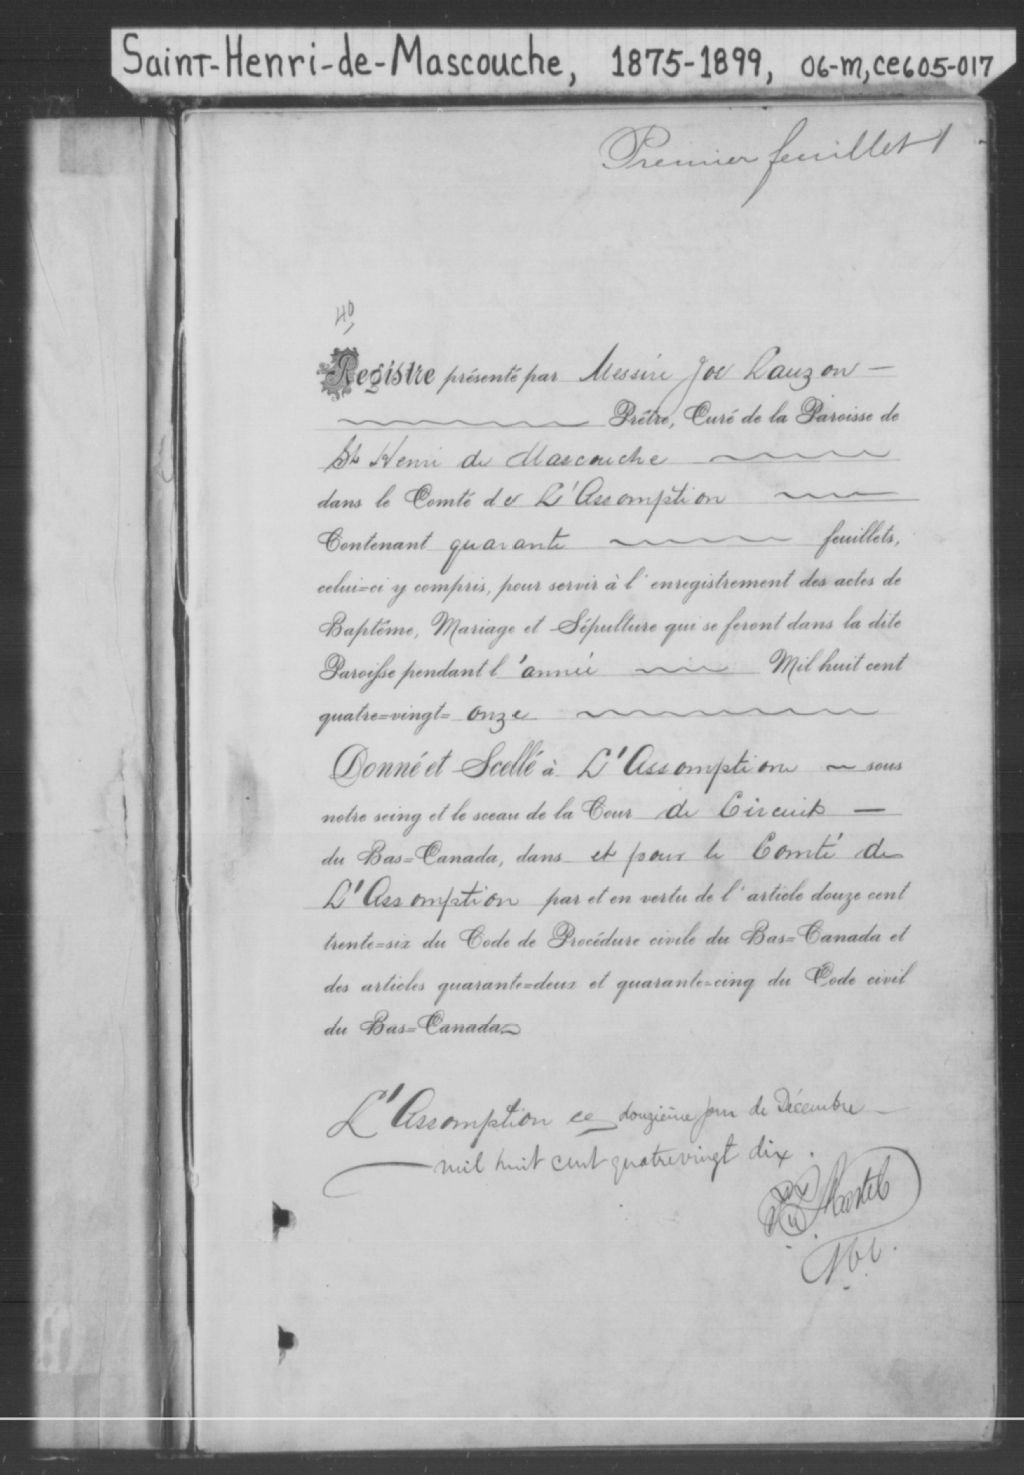 Saint-Henri-de-Mascouche, 1875-1899, 06-m,ce605-017
Premier feuillet 1
40
Registre présenté par Messire Jos Lauzon
Prêtre, Curé de la Paroisse de
St Henri de Mascouche
dans le Comté de L'Assomption
Contenant quarante feuillets,
celui=ci y compris, pour servir à l'enregistrement des actes de
Baptême, Mariage et Sépulture qui se feront dans la dite
Paroisse pendant l'année Mil huit cent
quatre=vingt= onze
Donné et Scellé à L'Assomption sous
notre seing et le sceau de la Cour de Circuit
du Bas=Canada, dans et pour le Comté de
L'Assomption par et en vertu de l'article douze cent
trente=six du Code de Procédure civile du Bas=Canada et
des articles quarante=deux et quarante=cinq du Code civil
du Bas=Canada
L'Assomption ce douzième jour de Décembre
mil huit cent quatrevingt dix.
Martel